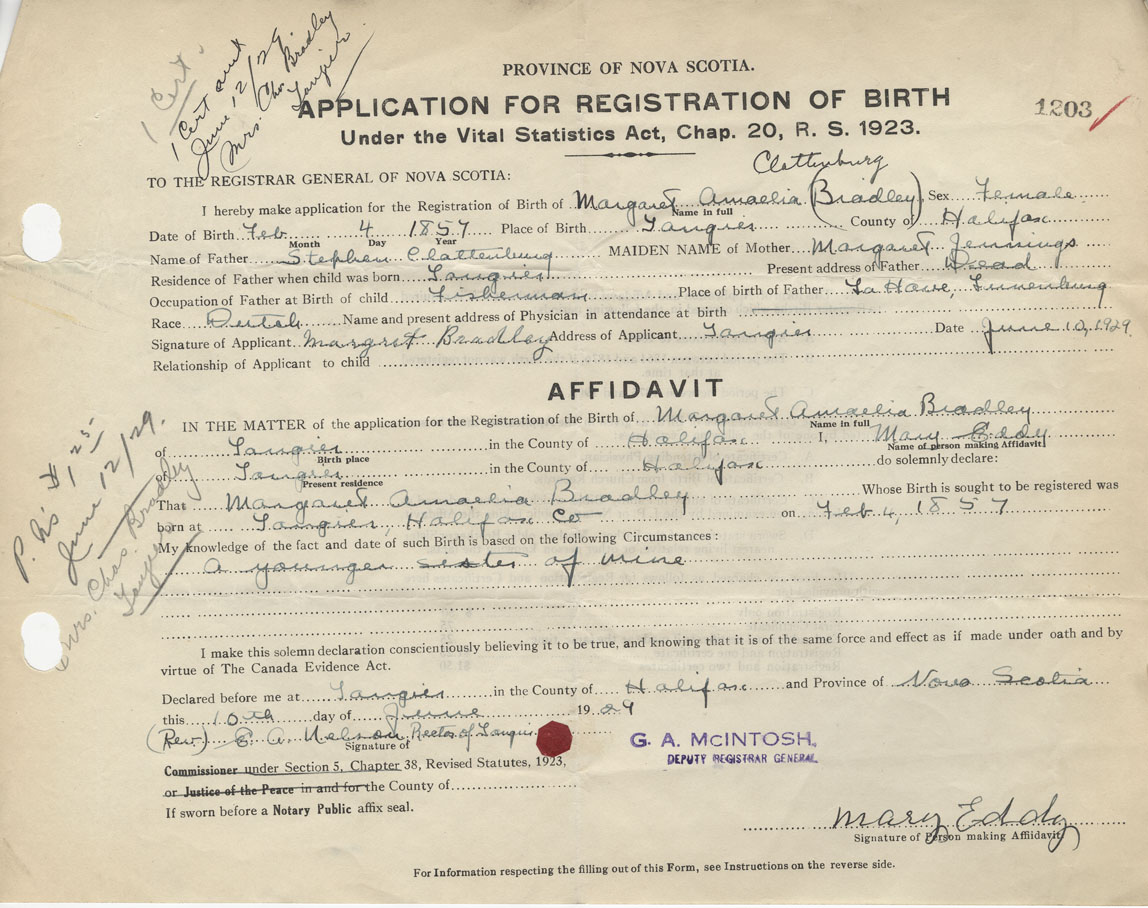 1 Cert.
1 Cert and
June 12/29
Mrs. Chas Bradley
Tangier
PROVINCE OF NOVA SCOTIA.
APPLICATION FOR REGISTRATION OF BIRTH
1203
Under the Vital Statistics Act, Chap. 20, R. S. 1923.
Clattenburg
TO THE REGISTRAR GENERAL OF NOVA SCOTIA:
I hereby make application for the Registration of Birth of Margaret Amaelia (Bradley) Sex Female
Name in full
Date of Birth Feb 4 1857 Place of Birth Tangier County of Halifax
Month Day Year
Name of Father Stephen Clattenburg MAIDEN NAME of Mother Margaret Jennings
Residence of Father when child was born Tangier Present address of Father Dead
Occupation of Father at Birth of child Fisherman Place of birth of Father La Have, Lunenburg
Race Dutch Name and present address of Physician in attendance at birth
Signature of Applicant Margret Bradley Address of Applicant Tangier Date June 10, 1929
Relationship of Applicant to child
AFFIDAVIT
IN THE MATTER of the application for the Registration of the Birth of Margaret Amaelia Bradley
Name in full
of Tangier in the County of Halifax I, Mary Eddy
Birth place Name of person making Affidavit
of Tangier in the County of Halifax do solemnly declare:
Present residence
That Margaret Amaelia Bradley Whose Birth is sought to be registered was
born at Tangier, Halifax Co on Feb 4, 1857
My knowledge of the fact and date of such Birth is based on the following Circumstances:
A younger sister of mine
P. Ns $1 25
June 12/29.
Mrs. Chas. Bradley
Tangier
I make this solemn declaration conscientiously believing it to be true, and knowing that it is of the same force and effect as if made under oath and by
virtue of The Canada Evidence Act.
Declared before me at Tangier in the County of Halifax and Province of Nova Scotia
this 10th day of June 1929
(Rev.) E. A. Nelson Rector of Tangier
Signature of
G. A. McINTOSH,
DEPUTY REGISTRAR GENERAL.
Commissioner under Section 5, Chapter 38, Revised Statutes, 1923,
or Justice of the Peace in and for the County of
If sworn before a Notary Public affix seal.
Mary Eddy
Signature of Person making Affidavit
For Information respecting the filling out of this Form, see Instructions on the reverse side.